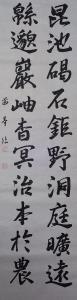 昆池碣石鉅野洞庭曠遠
緜邈巖岫杳冥治本於農